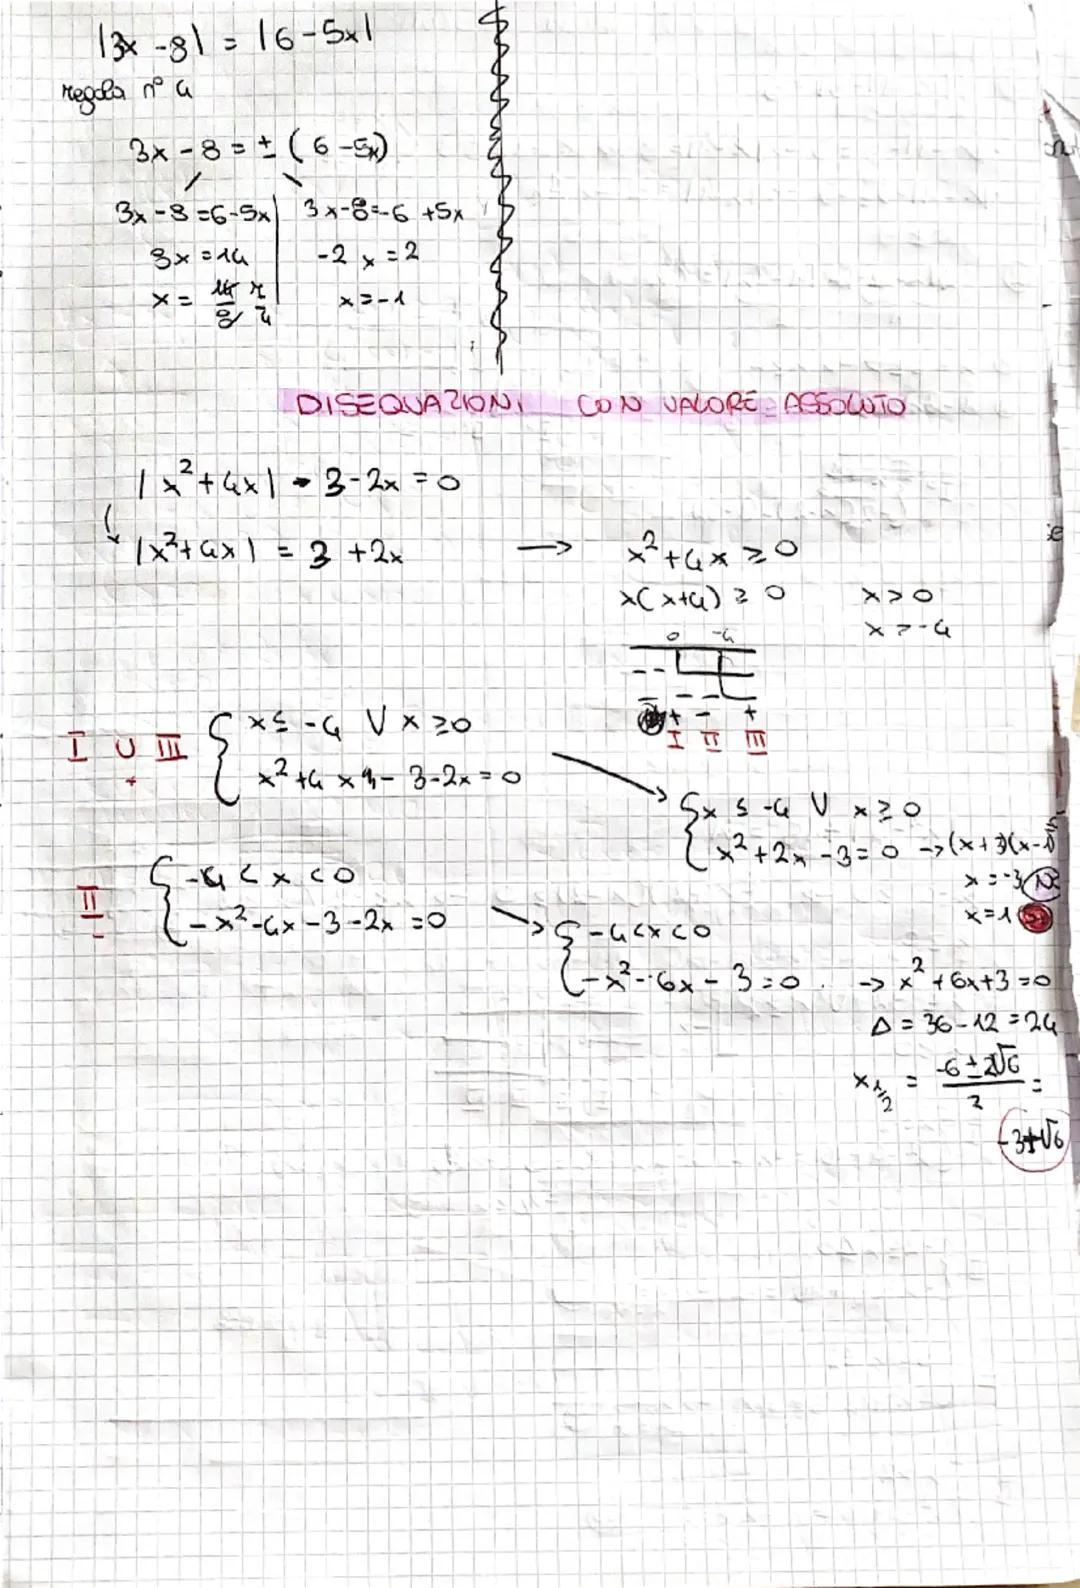 |3x -8| = |6-5x|
regola n° 4
3x-8 = ± (6-5x)
3x-8=6-5x | 3x-8=-6 +5x
8x=14 | -2x=2
x= 14/8 7/4 | x=-1
DISEQUAZIONI CON VALORE ASSOLUTO
|x²+4x| - 3-2x=0
|x²+4x| = 3 +2x → x²+4x ≥0
x(x+4) ≥ 0 x>0
x>-4
0 -4
- -
- - -
+ - +
I II III
I U III { x≤ -4 V x≥0
x²+4x - 3-2x=0
{ x ≤ -4 V x≥0
x²+2x-3=0 → (x+3)(x-1)
x=-3
x=1
II { -4<x<0
-x²-4x-3-2x=0
{ -4<x<0
-x²-6x-3=0 → x²+6x+3=0
Δ = 36-12=24
x 1/2 = -6±2√6 / 2 =
-3±√6